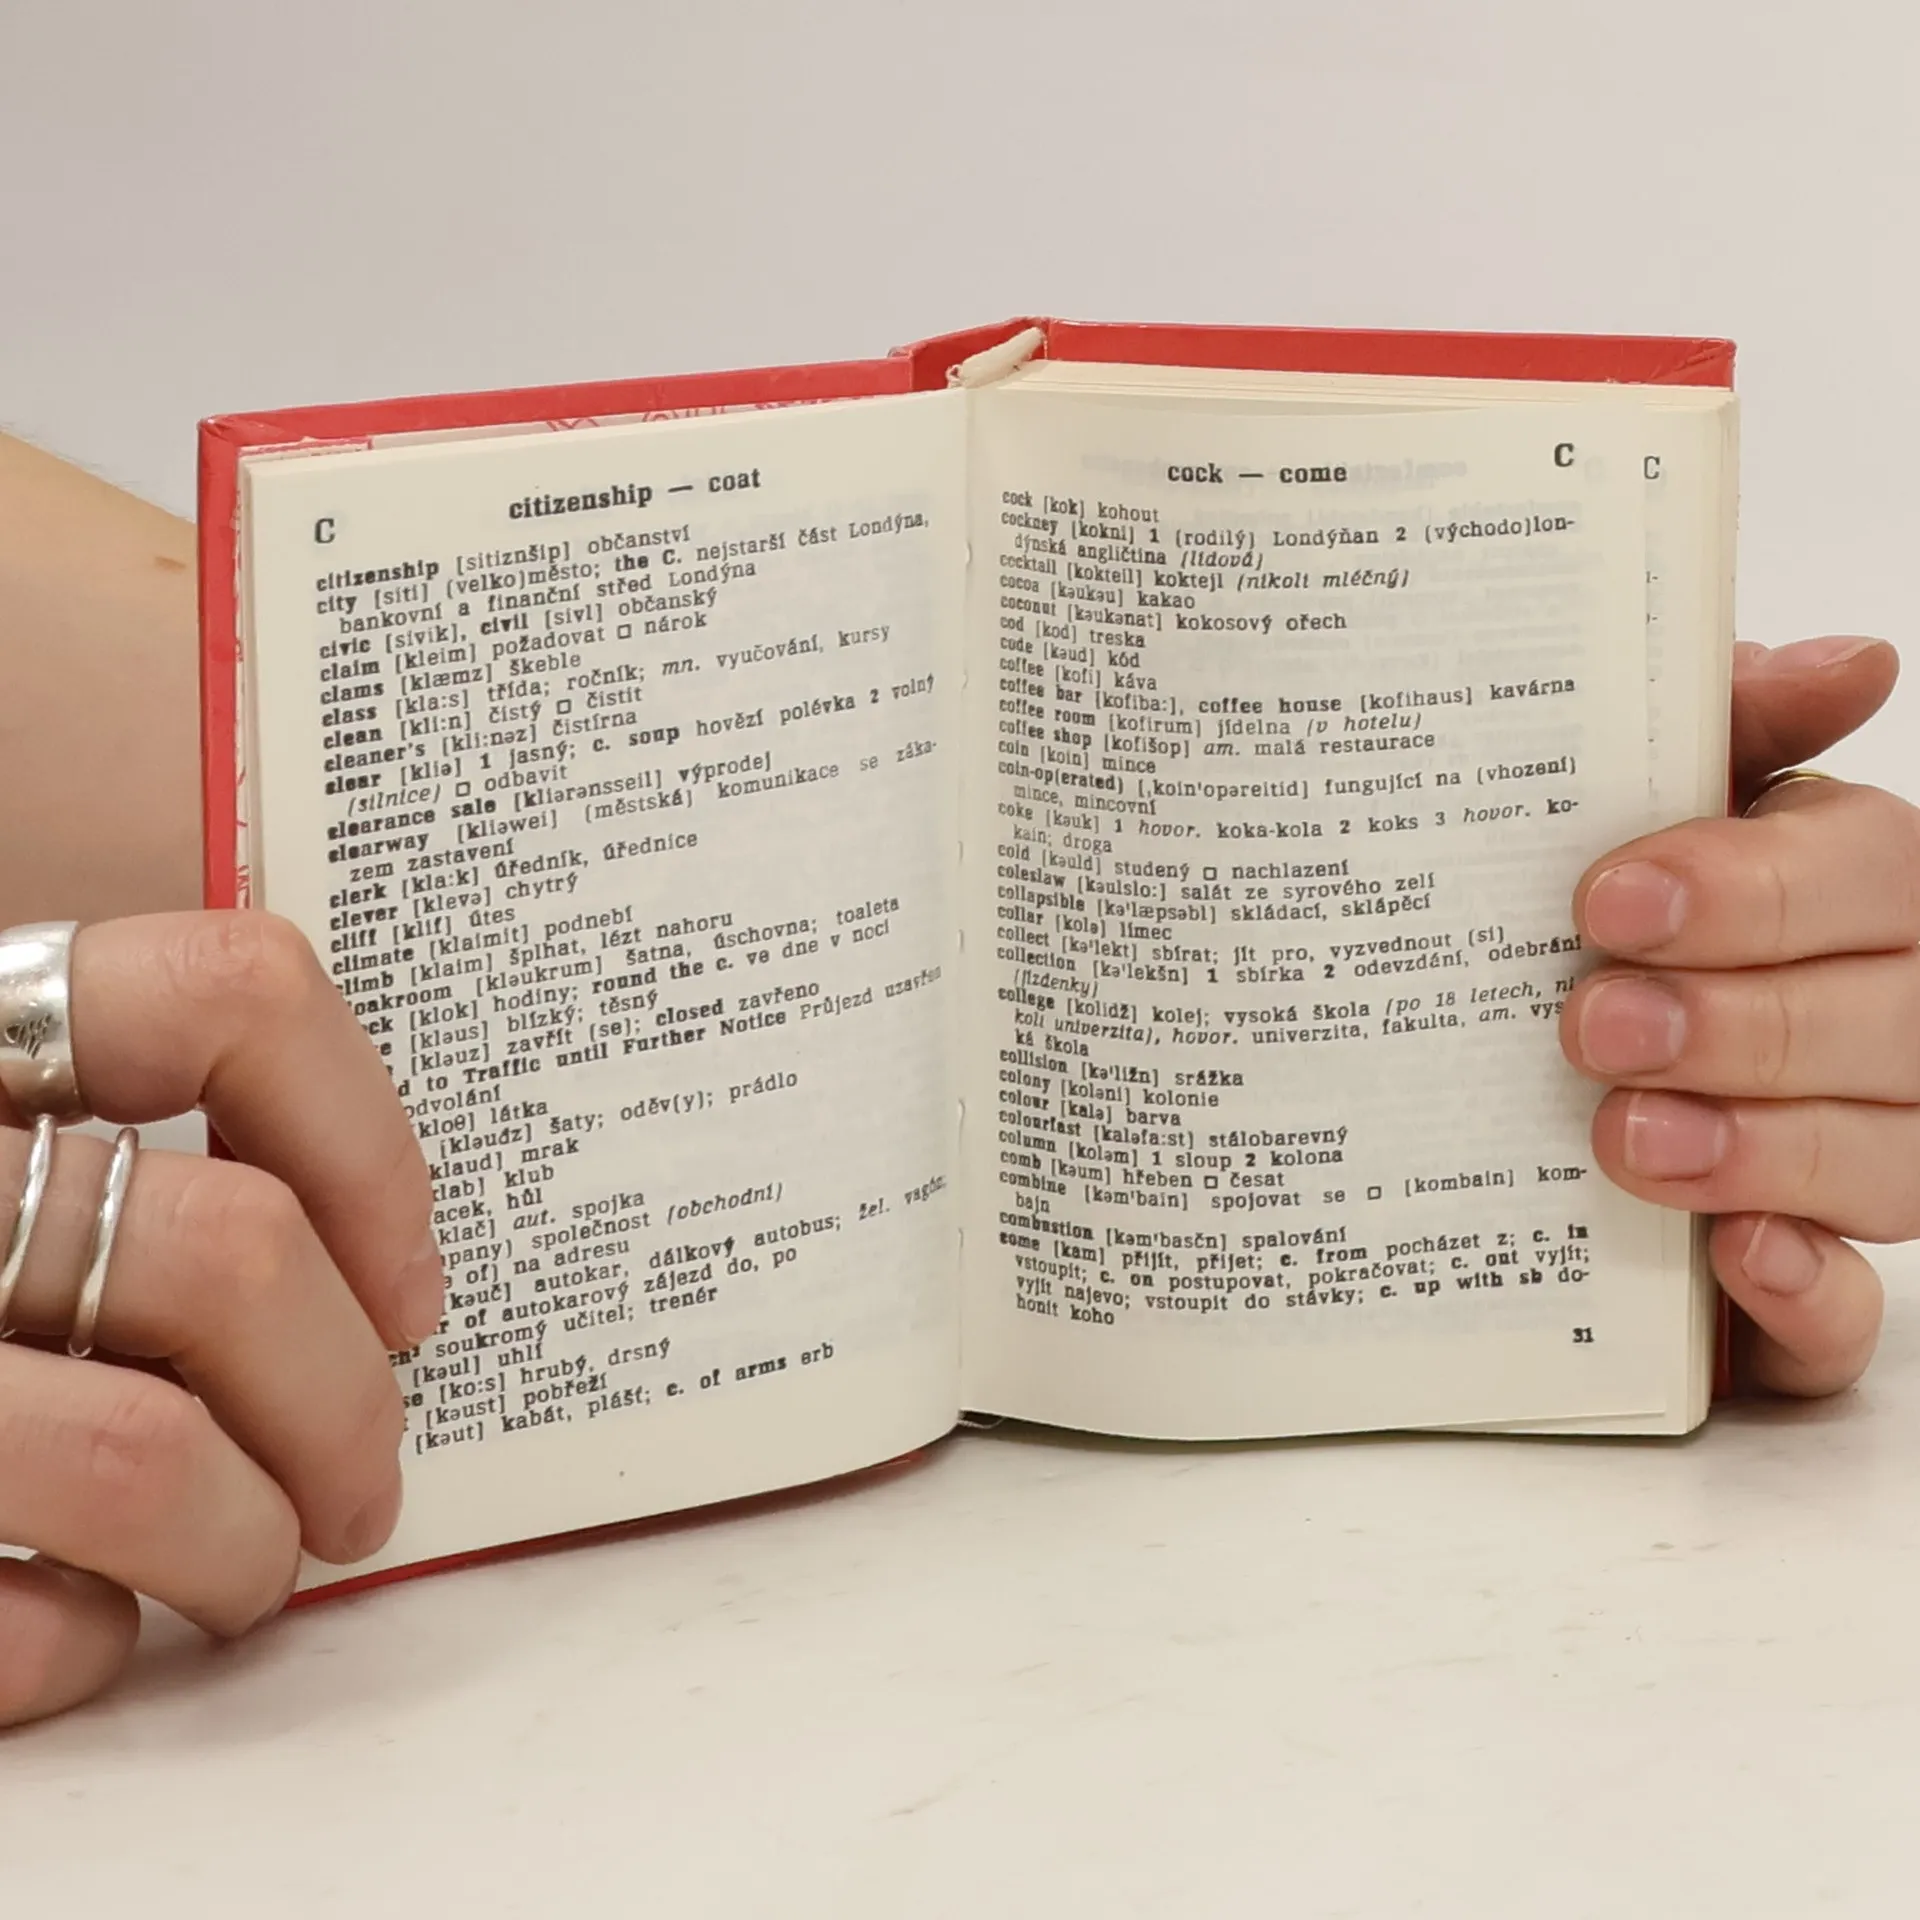 C
citizenship — coat
citizenship [sitiznšip] občanství
city [siti] (velko)město; the C. nejstarší část Londýna,
bankovní a finanční střed Londýna
civic [sivik], civil [sivl] občanský
claim [kleim] požadovat □ nárok
clams [klæmz] škeble
class [kla:s] třída; ročník; mn. vyučování, kursy
clean [kli:n] čistý □ čistit
cleaner's [kli:nəz] čistírna
clear [kliə] 1 jasný; c. soup hovězí polévka 2 volný
(silnice) □ odbavit
clearance sale [kliərənsseil] výprodej
clearway [kliəwei] (městská) komunikace se záka-
zem zastavení
clerk [kla:k] úředník, úřednice
clever [klevə] chytrý
cliff [klif] útes
climate [klaimit] podnebí
climb [klaim] šplhat, lézt nahoru
oakroom [kləukrum] šatna, úschovna; toaleta
ck [klok] hodiny; round the c. ve dne v noci
e [kləus] blízký; těsný
[kləuz] zavřít (se); closed zavřeno
d to Traffic until Further Notice Průjezd uzavřen
odvolání
[kloθ] látka
[kləudz] šaty; oděv(y); prádlo
klaud] mrak
klab] klub
acek, hůl
klač] aut. spojka
mpany) společnost (obchodní)
e of) na adresu
[kəuč] autokar, dálkový autobus; žel. vagón;
r of autokarový zájezd do, po
ch² soukromý učitel; trenér
[kəul] uhlí
se [ko:s] hrubý, drsný
[kəust] pobřeží
[kəut] kabát, plášť; c. of arms erb
cock — come
C
cock [kok] kohout
cockney [kokni] 1 (rodilý) Londýňan 2 (východo)lon-
dýnská angličtina (lidová)
cocktail [kokteil] koktejl (nikoli mléčný)
cocoa [kəukəu] kakao
coconut [kəukənat] kokosový ořech
cod [kod] treska
code [kəud] kód
coffee [kofi] káva
coffee bar [kofiba:], coffee house [kofihaus] kavárna
coffee room [kofirum] jídelna (v hotelu)
coffee shop [kofišop] am. malá restaurace
coin [koin] mince
coin-op(erated) [ˌkoin'opəreitid] fungující na (vhození)
mince, mincovní
coke [kəuk] 1 hovor. koka-kola 2 koks 3 hovor. ko-
kain; droga
cold [kəuld] studený □ nachlazení
coleslaw [kəulslo:] salát ze syrového zelí
collapsible [kə'læpsəbl] skládací, sklápěcí
collar [kolə] límec
collect [kə'lekt] sbírat; jít pro, vyzvednout (si)
collection [kə'lekšn] 1 sbírka 2 odevzdání, odebrání
(jízdenky)
college [kolidž] kolej; vysoká škola (po 18 letech, ni
koli univerzita), hovor. univerzita, fakulta, am. vys
ká škola
collision [kə'ližn] srážka
colony [koləni] kolonie
colour [kalə] barva
colourfast [kaləfa:st] stálobarevný
column [koləm] 1 sloup 2 kolona
comb [kəum] hřeben □ česat
combine [kəm'bain] spojovat se □ [kombain] kom-
bajn
combustion [kəm'basčn] spalování
come [kam] přijít, přijet; c. from pocházet z; c. in
vstoupit; c. on postupovat, pokračovat; c. out vyjít;
vyjít najevo; vstoupit do stávky; c. up with sb do-
honit koho
31
C